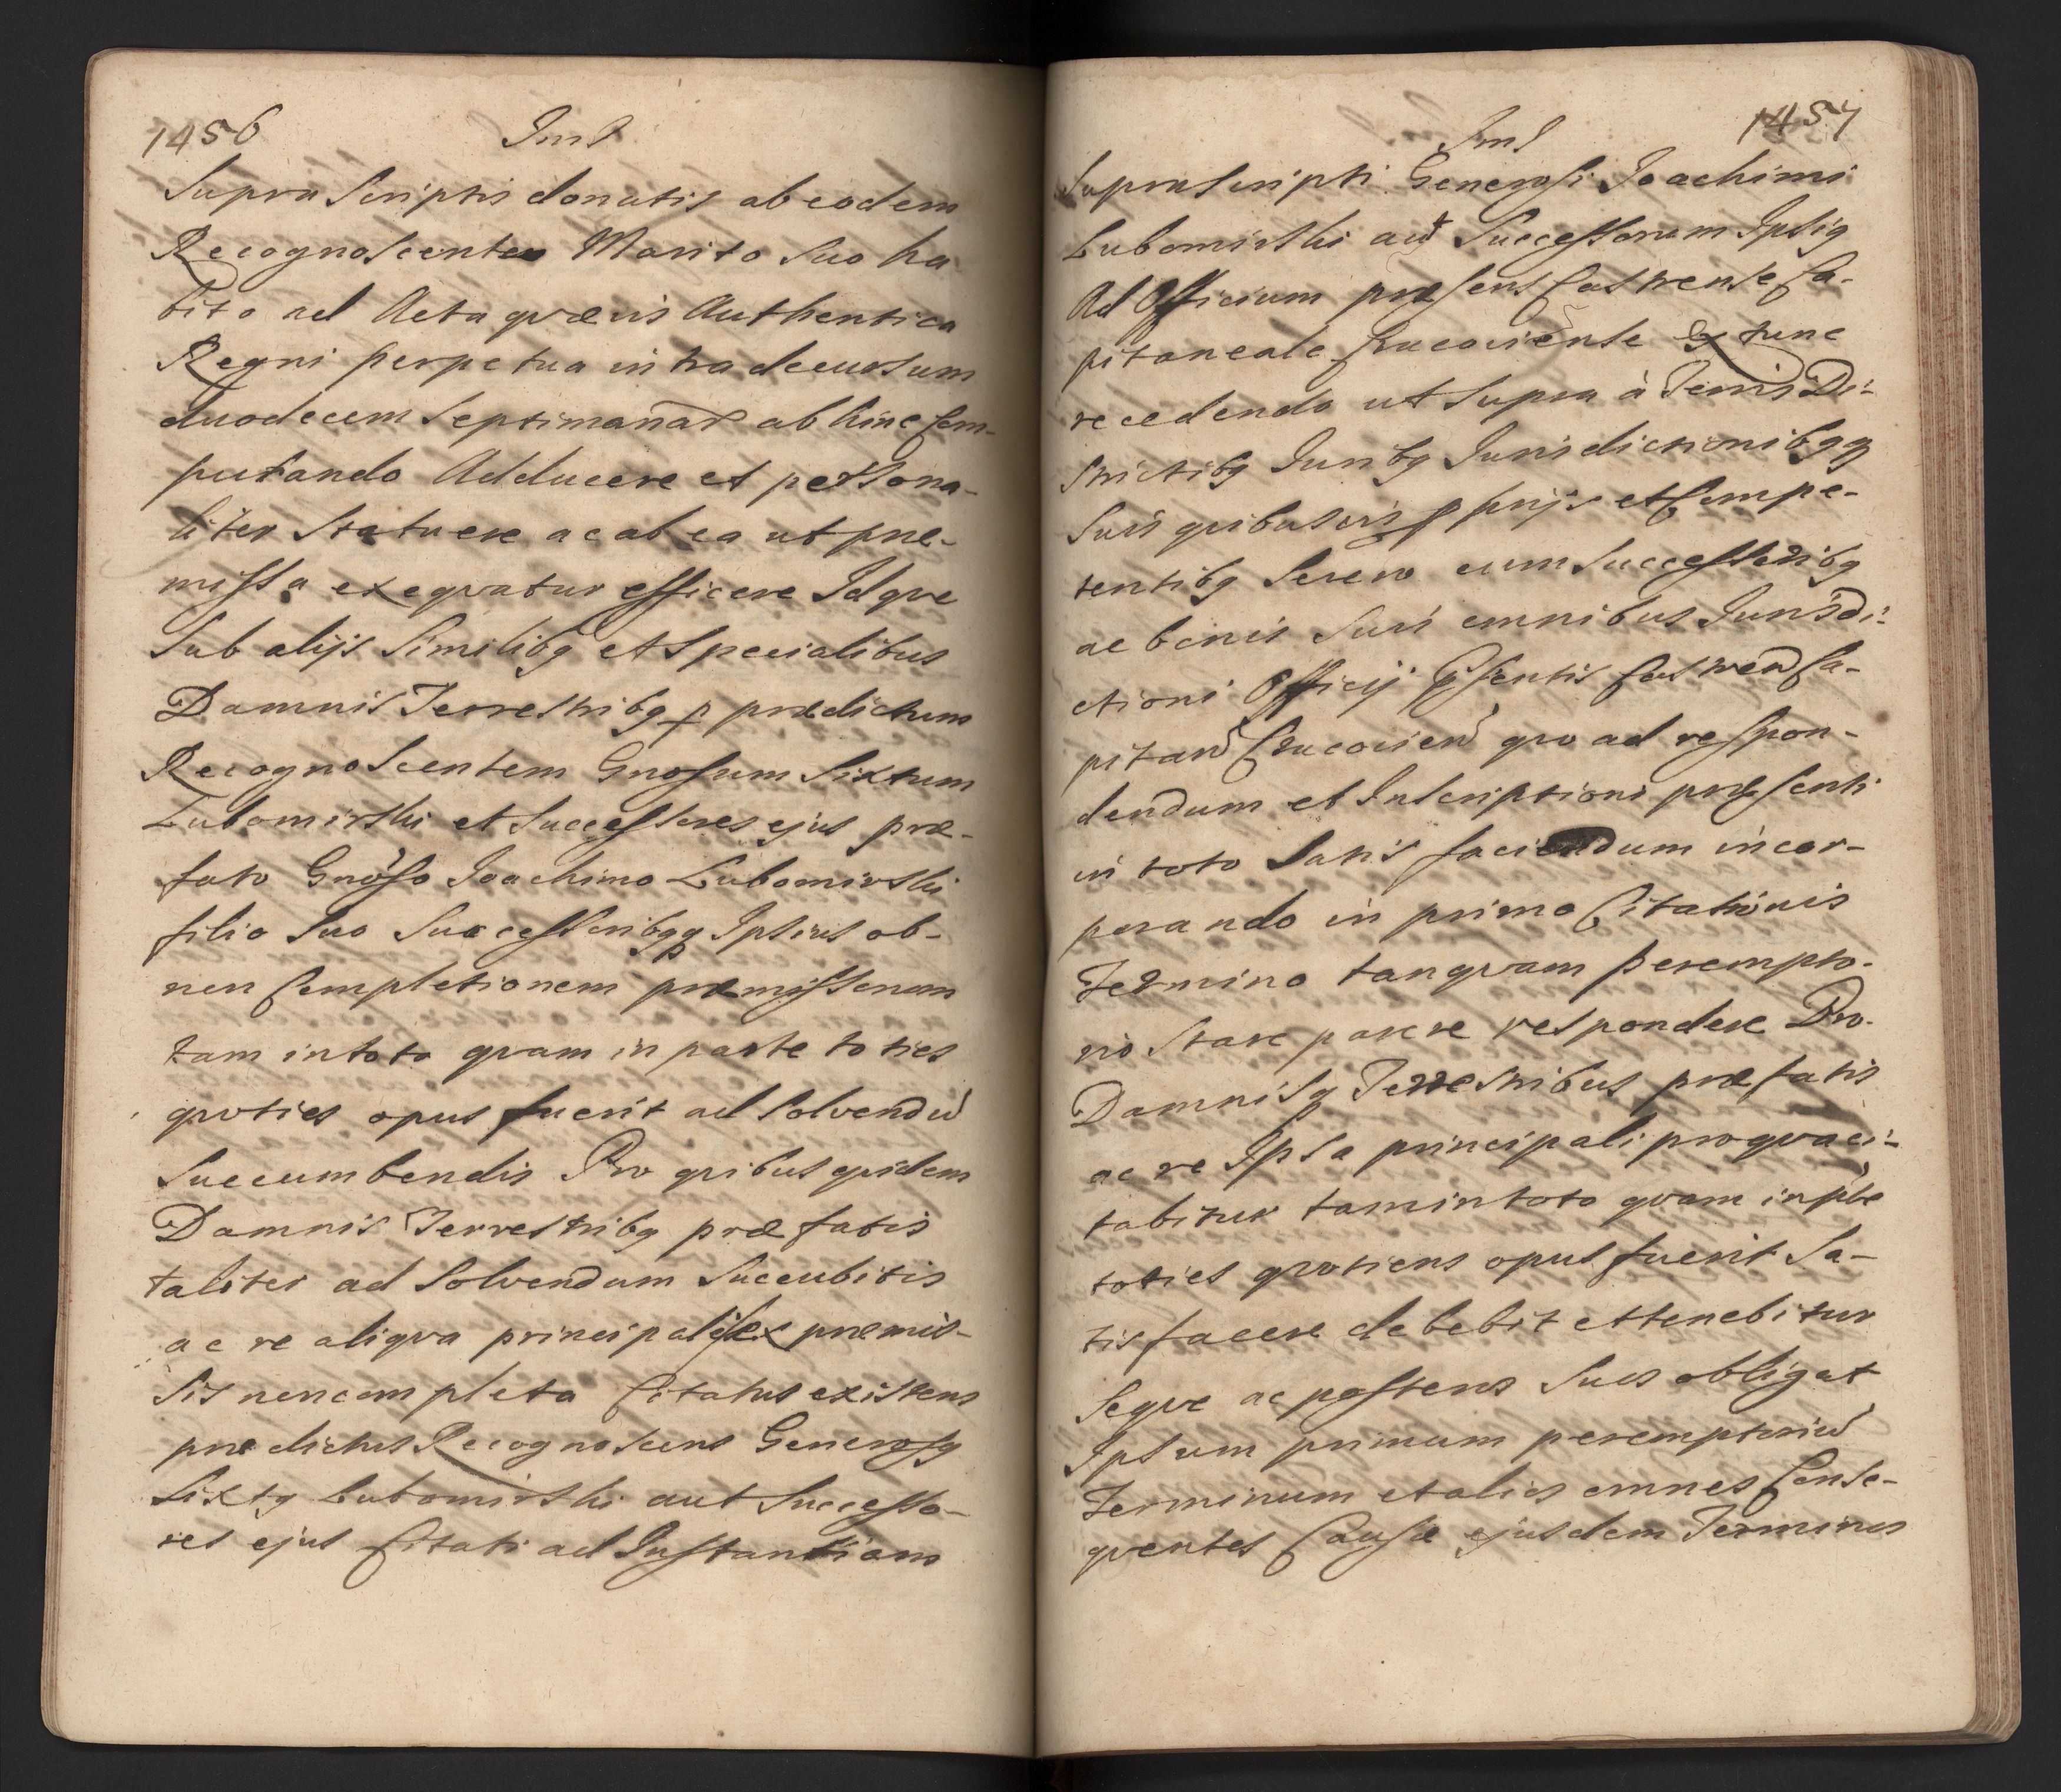 1456
Supra Scriptis donatis ab eodem
Recognoscente Marito Suo ha
bito ad Acta quævis Authentica
Regni perpetua intra decursum
duodecem Septimanar ab hinc Com-
putando Adducere et persona-
liter Statuere ac ab ea ut præ-
missa exequatur efficere Idque
Sub alijs Similibq et Specialibus
Damnis Terrestribq p prædictum
Recognoscentem Gnosum Sixtum
Lubomirski et Successores ejus præ-
fato Gnoso Joachimo Lubomirski
filio Suo Successoribqq Ipsius ob-
non Completionem præmissorum
tam in toto quam in parte toties
quoties opus fuerit ad Solvendu
Succumbendis Pro quibus quidem
Damnis Terrestribq præfatis
taliter ad Solvendum Succubitis
ac re aliqua principali ex præmis-
Sis non completa Citatus existens
prædictus Recognoscens Generosq
Sixtq Lubomirski aut Successo-
res ejus Citati ad Instantiam
1457
Suprascripti Generosi Joachimi
Lubomirski aut Successorum Ipsiq
Ad Officium præsens Castrense Ca-
pitaneale Cracoviense Ex tunc
recedendo ut Supra à Terris Di-
strictibq Juribq Jurisdictionibqq
Suis quibusvis pprijs et Compe-
tentibq Sereno cum Successoribq
ac bonis Suis omnibus Jurisdi-
ctioni Officij Psentis Castren Ca-
pitan Cracovien quo ad respon-
dendum et Inscriptioni præsenti
in toto Satis faciendum incor-
porando in primo Citationis
Termino tanquam Perempto-
rio Stare parere respondere Pro
Damnisq Terrestribus præfatis
ac re Ipsa principali pro qua ci-
tabitur tam in toto quam in pte
toties quotiens opus fuerit Sa-
tisfacere debebit et tenebitur
Seque ac posteros Suos obligat
Ipsum primum peremptoriu
Terminum et alios omnes Conse-
quentes Causæ ejusdem Terminos